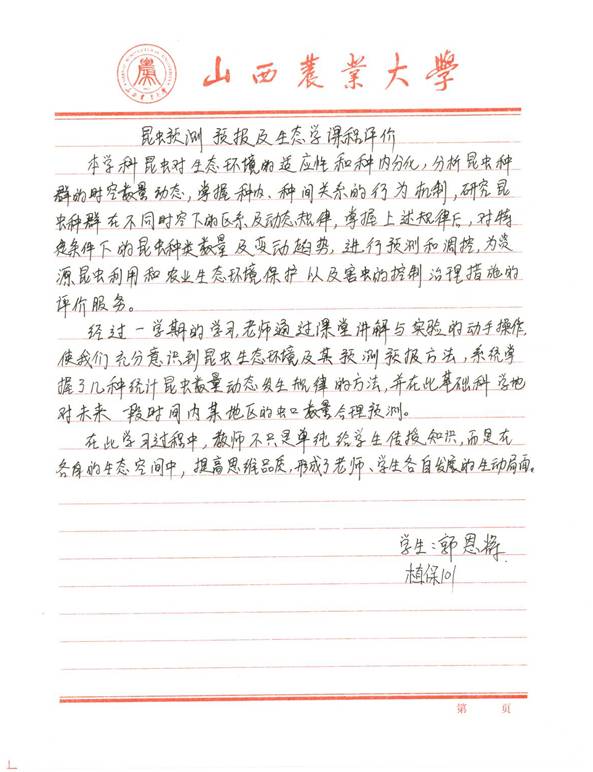 山西农业大学
昆虫预测预报及生态学课程评价
本学科昆虫对生态环境的适应性和种内分化，分析昆虫种
群的时空数量动态，掌握种内、种间关系的行为机制，研究昆
虫种群在不同时空下的区系及动态规律，掌握上述规律后，对特
定条件下的昆虫种类数量及变动趋势，进行预测和调控，为资
源昆虫利用和农业生态环境保护以及害虫的控制治理措施的
评价服务。
经过一学期的学习，老师通过课堂讲解与实验的动手操作，
使我们充分意识到昆虫生态环境及其预测预报方法，系统掌
握了几种统计昆虫数量动态发生规律的方法，并在此基础科学地
对未来一段时间内某地区的虫口数量合理预测。
在此学习过程中，教师不只是单纯给学生传授知识，而是在
各自的生态空间中，提高思维品质，形成了老师、学生各自发展的生动局面。
学生：郭恩将
植保101
第 页